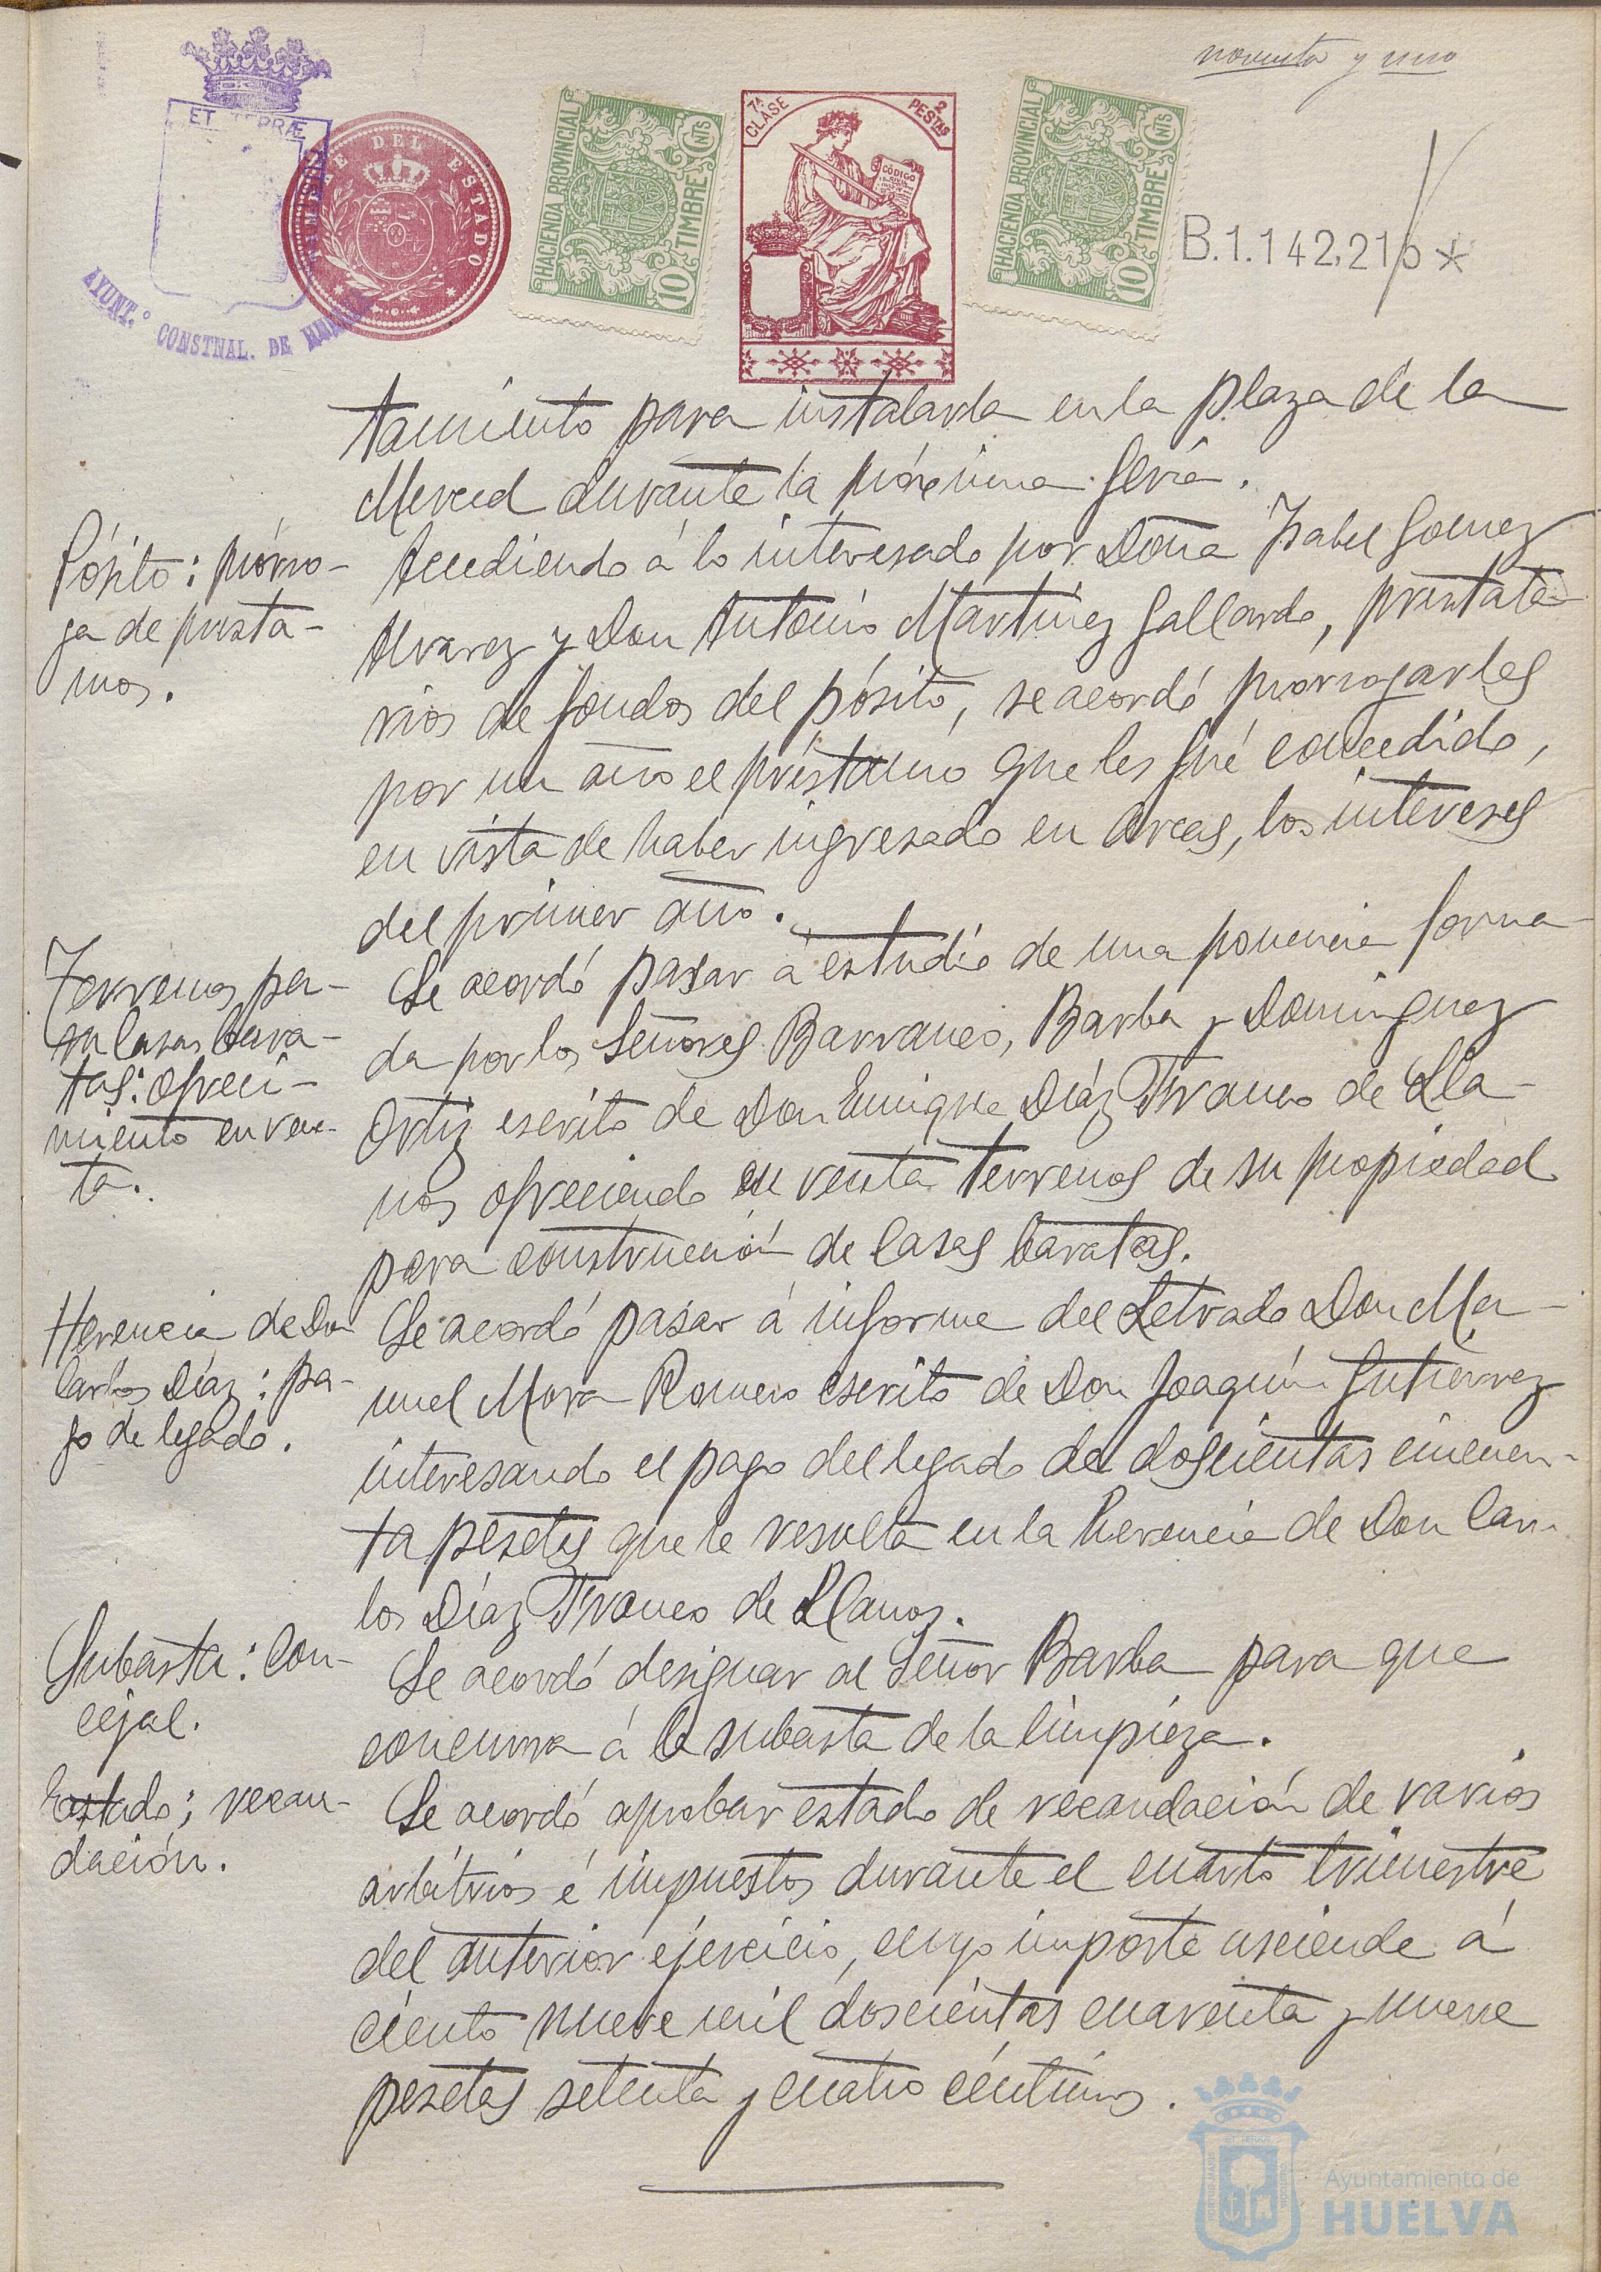 noventa y uno
ET TERRÆ
AYUNT.º CONSTNAL. DE HUELVA
TIMBRE DEL ESTADO
HACIENDA PROVINCIAL
10 CNTS
TIMBRE
7ª CLASE
2 PESTAS
CÓDIGO
HACIENDA PROVINCIAL
10 CNTS
TIMBRE
B.1.142,215*
tamiento para instalarla en la plaza de la
Merced durante la próxima feria.
Pósito: prórro-
ga de présta-
mos.
Accediendo á lo interesado por Doña Isabel Gomez
Alvarez y Don Antonio Martinez Gallardo, prestata-
rios de fondos del pósito, se acordó prorrogarles
por un año el préstamo que les fué concedido,
en vista de haber ingresado en arcas, los intereses
del primer año.
Terrenos pa-
ra casas bara-
tas: ofreci-
miento en ven-
ta.
Se acordó pasar á estudio de una ponencia forma-
da por los Señores Barranco, Barba y Dominguez
Ortiz escrito de Don Enrique Díaz Franco de Lla-
nos ofreciendo en venta terrenos de su propiedad
para construcción de casas baratas.
Herencia de Don
Carlos Díaz: pa-
go de legado.
Se acordó pasar á informe del Letrado Don Ma-
nuel Mora Romero escrito de Don Joaquín Gutierrez
interesando el pago del legado de doscientas cincuen-
ta pesetas que le resulta en la herencia de Don Car-
los Díaz Franco de Llanos.
Subasta: con-
cejal.
Se acordó designar al Señor Barba para que
concurra á la subasta de la limpieza.
Estado; recau-
dación.
Se acordó aprobar estado de recaudación de varios
arbitrios é impuestos durante el cuarto trimestre
del anterior ejercicio, cuyo importe asciende á
ciento nueve mil doscientas cuarenta y nueve
pesetas setenta y cuatro céntimos.
Ayuntamiento de
HUELVA